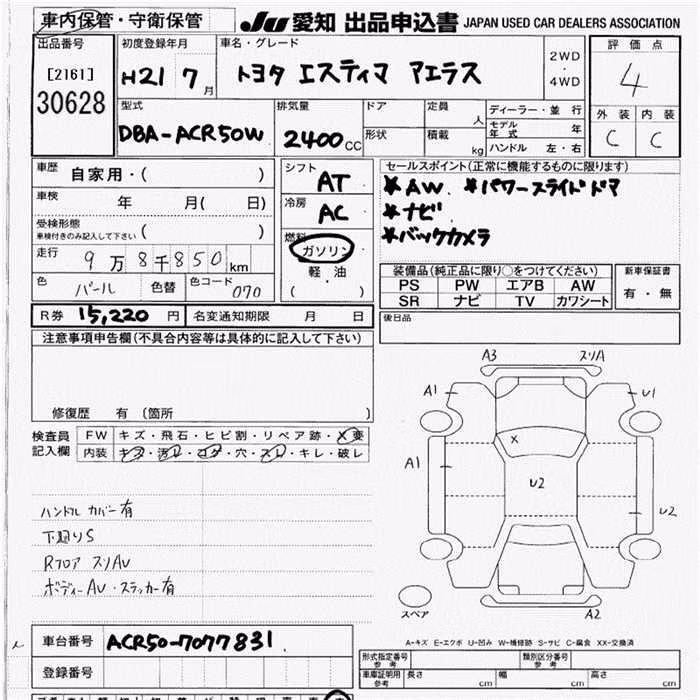 車内保管・守衛保管 JU 愛知 出品申込書 JAPAN USED CAR DEALERS ASSOCIATION
出品番号 初度登録年月 車名・グレード 2WD ・ 4WD 評価点
[2161] H21 7月 トヨタ エスティマ アエラス 4
30628
型式 排気量 ドア 定員 人 ディーラー・並行 外装 内装
DBA-ACR50W 2400cc 形状 積載 kg モデル年式 年 C C
ハンドル 左・右
車歴 自家用・( ) シフト AT セールスポイント(正常に機能するものに限ります)
車検 年 月( 日) 冷房 AC *AW. *パワースライドドア
受検形態 *ナビ.
車検付きのみ記入して下さい ( ) 燃料 *バックカメラ
走行 9万8千850km ガソリン
軽油
( )
色 パール 色替 色コード 070
装備品(純正品に限り○をつけてください) 新車保証書
PS PW エアB AW 有・無
SR ナビ TV カワシート
R券 15,220円 名変通知期限 月 日 後日品
注意事項申告欄(不具合内容等は具体的に記入して下さい)
修復歴 有 (箇所 )
検査員 FW キズ・飛石・ヒビ割・リペア跡・X要
記入欄 内装 キズ・汚レ・コゲ・穴・スレ・キレ・破レ
ハンドル カバー有
下廻りS
Rフロア スリAU
ボディーAU・ステッカー有
A3 スリA
A1 U1
X
A1 U2
U2
スペア A2
A-キズ E-エクボ U-凹み W-補修跡 S-サビ C-腐食 XX-交換済
車台番号 ACR50-7077831
登録番号
形式指定番号 参考 類別区分番号 参考
車庫証明用 参考 長さ cm 幅 cm 高さ cm